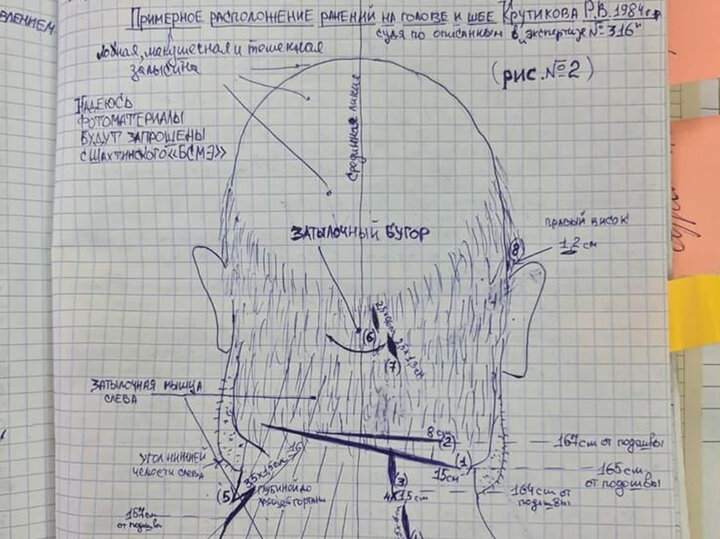 влением
Примерное расположение ранений на голове и шее Крутикова Р.В. 1984г.р
судя по описанным в „экспертизе № 316"
(рис. №2)
Лобная, макушечная и теменная
залысина
Надеюсь
фотоматериалы
будут запрошены
с Шахтинского «БСМЭ»
Срединная линия
Затылочный бугор
правый висок
1,2 см
(8)
(6)
(7)
Затылочная мышца
слева
8 см
(2)
(1)
15 см
(3)
4х1,5 см
угол нижней
челюсти слева
3,5х1,5см
16
(5)
глубиной до
хрящей гортани
167 см от подошвы
165 см
от подошвы
164 см от
подошвы
157 см
от подошвы